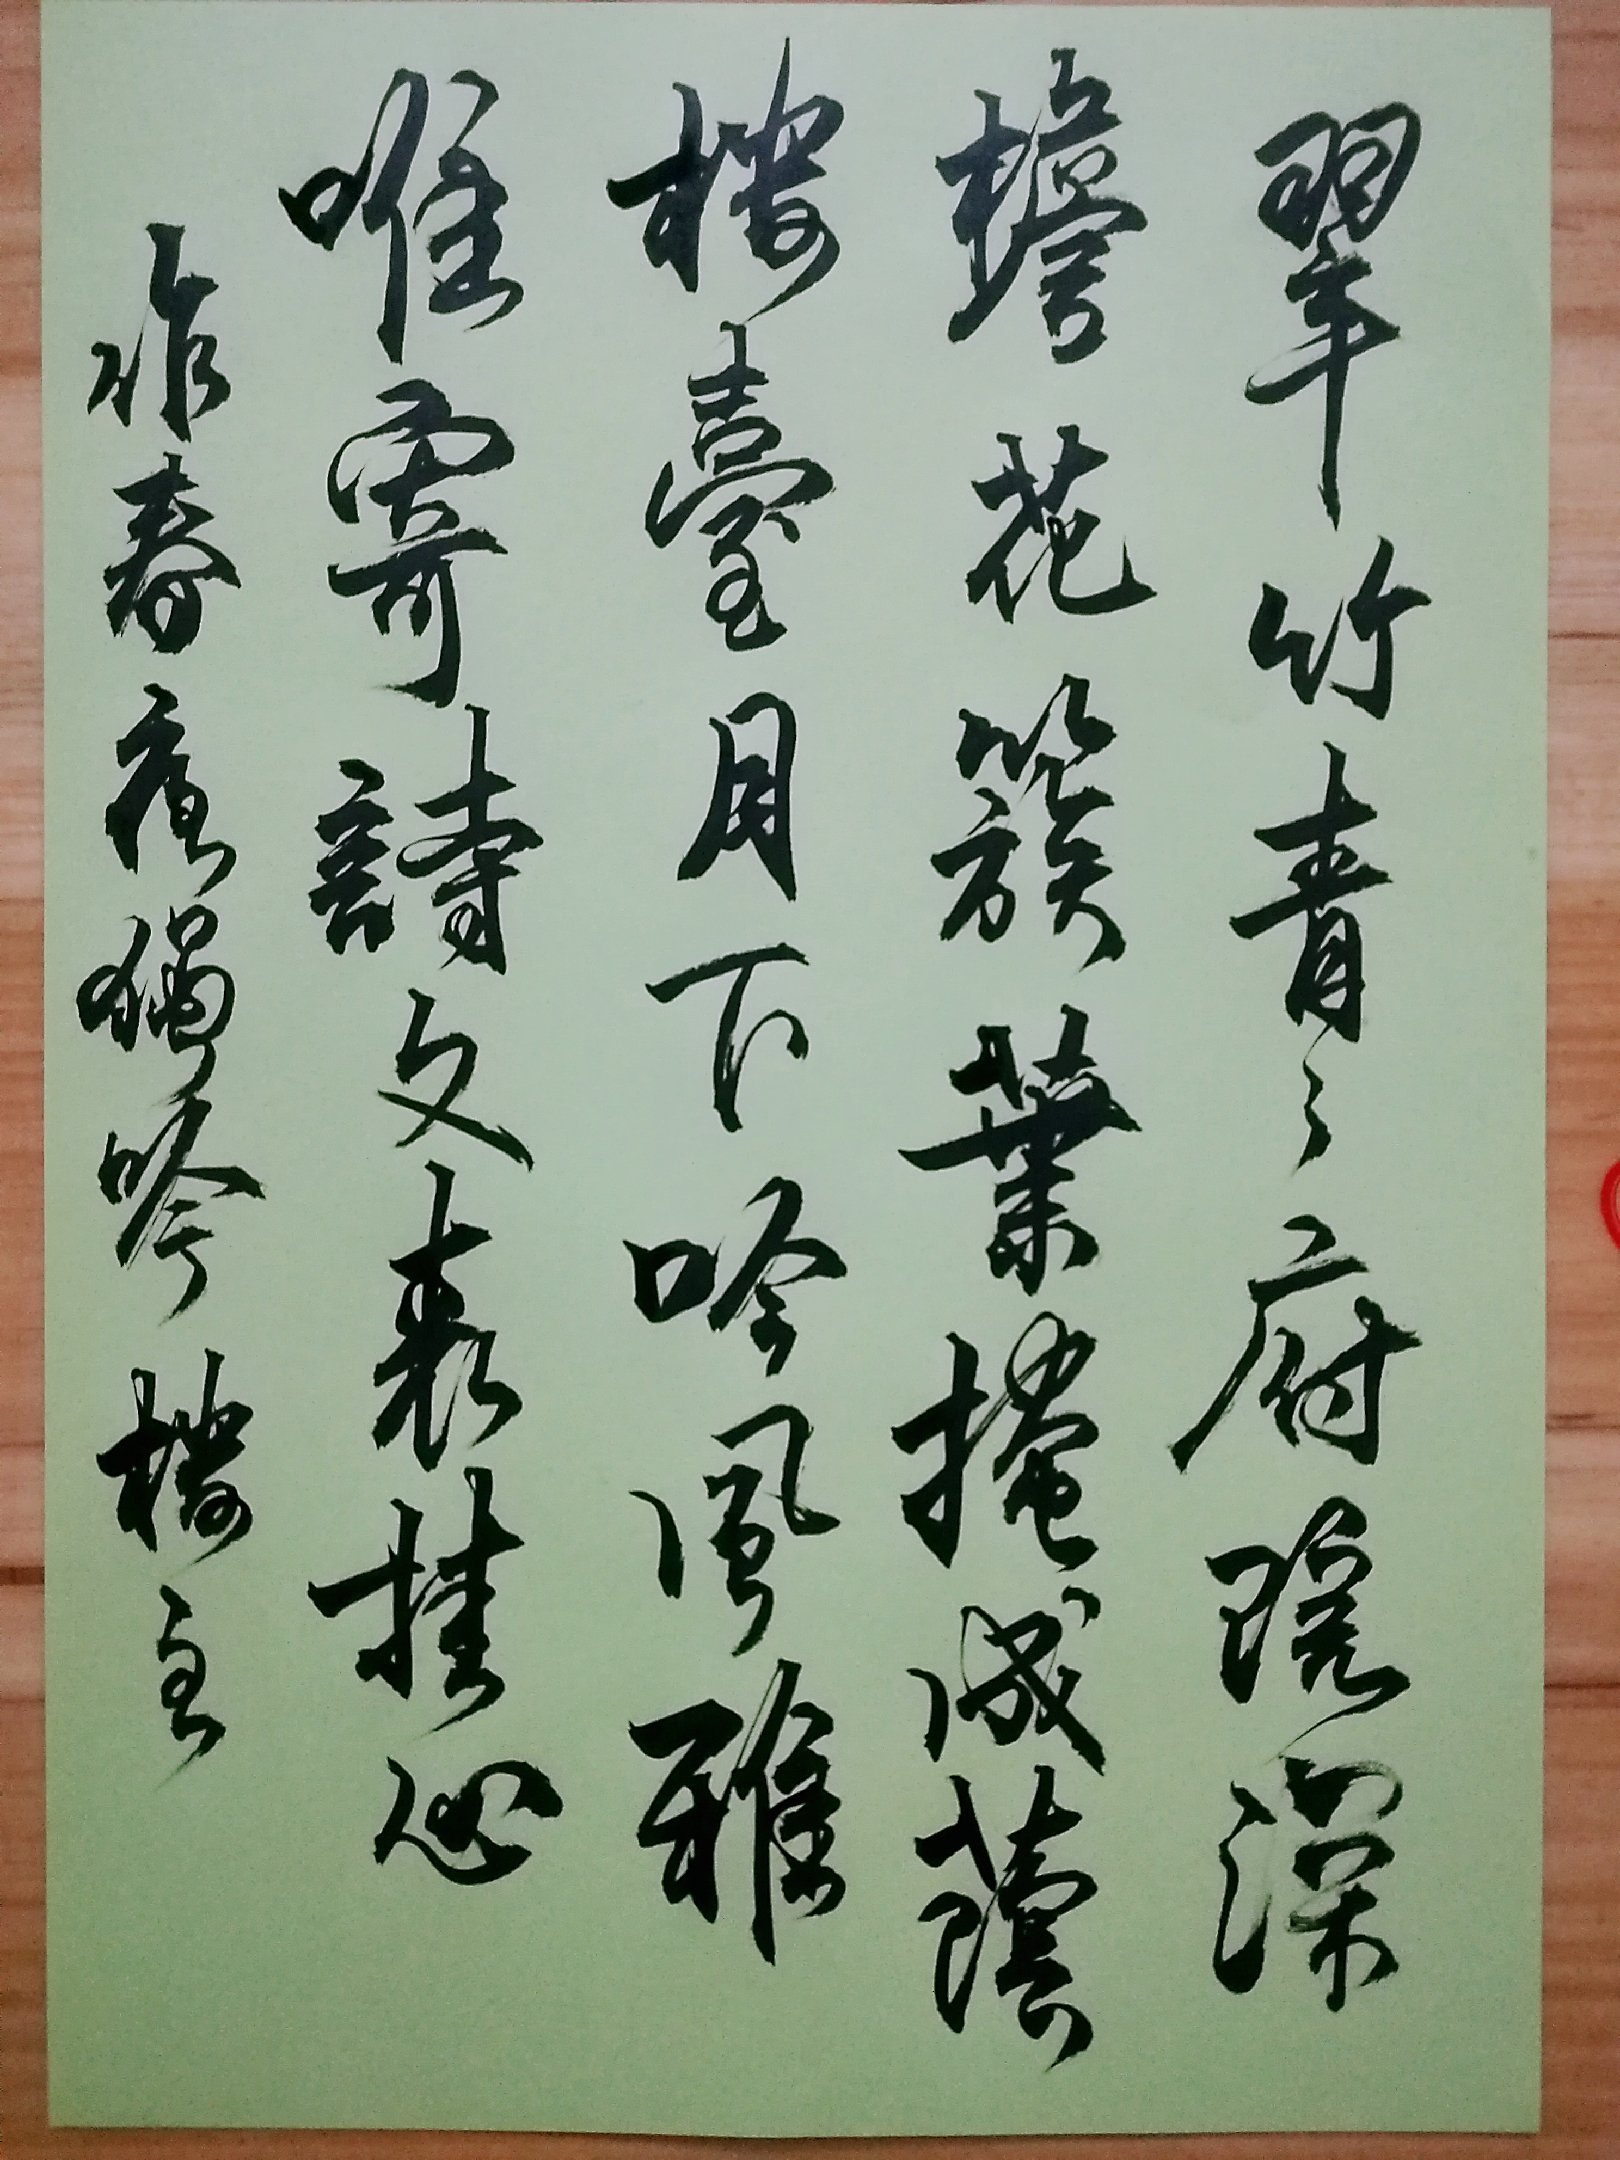 翠竹青々府院深
簷花簇葉掩成蔭
樓臺月下吟風雅
唯寄詩文表挂心
作春夜獨吟樓主